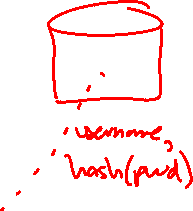 username,
hash(pwd)